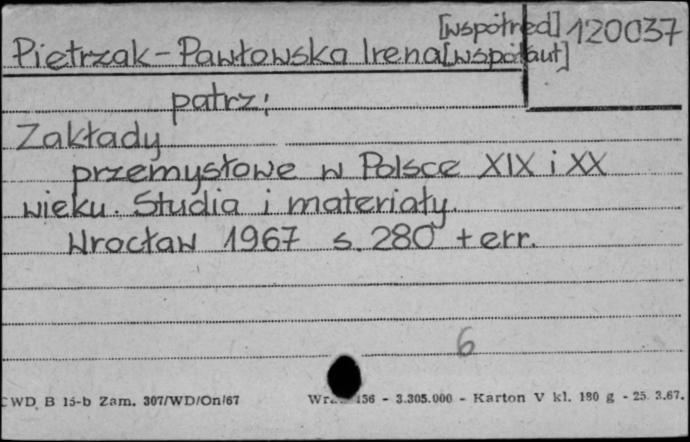 [współred] 120037
Pietrzak-Pawłowska Irena [współaut]
patrz:
Zakłady
przemysłowe w Polsce XIX i XX
wieku. Studia i materiały.
Wrocław 1967 s. 280 + err.
6
CWD, B 15-b Zam. 307/WD/On/67 156 - 3.305.000 - Karton V kl. 180 g - 25. 3.67.